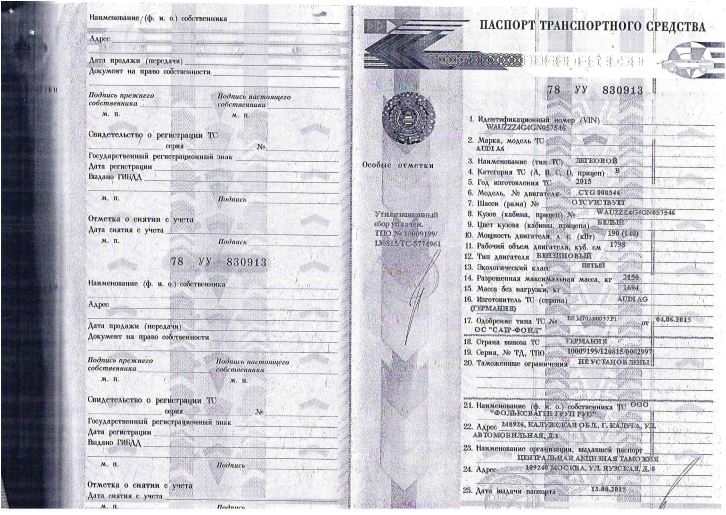 Наименование (ф. и. о.) собственника
Адрес
Дата продажи (передачи)
Документ на право собственности
Подпись прежнего собственника
Подпись настоящего собственника
м. п.
м. п.
Свидетельство о регистрации ТС
серия №
Государственный регистрационный знак
Дата регистрации
Выдано ГИБДД
м. п.
Подпись
Отметка о снятии с учета
Дата снятия с учета
м. п.
Подпись
78 УУ 830913
Наименование (ф. и. о.) собственника
Адрес
Дата продажи (передачи)
Документ на право собственности
Подпись прежнего собственника
Подпись настоящего собственника
м. п.
м. п.
Свидетельство о регистрации ТС
серия №
Государственный регистрационный знак
Дата регистрации
Выдано ГИБДД
м. п.
Подпись
Отметка о снятии с учета
Дата снятия с учета
м. п.
Подпись
ПАСПОРТ ТРАНСПОРТНОГО СРЕДСТВА
78 УУ 830913
Особые отметки
Утилизационный
сбор уплачен.
ТПО № 10009199/
130815/ТС-5774961
1. Идентификационный номер (VIN)
WAUZZZ4G4GN057546
2. Марка, модель ТС
AUDI A6
3. Наименование (тип ТС) ЛЕГКОВОЙ
4. Категория ТС (А, В, С, D, прицеп) В
5. Год изготовления ТС 2015
6. Модель, № двигателя CYG 008546
7. Шасси (рама) № ОТСУТСТВУЕТ
8. Кузов (кабина, прицеп) № WAUZZZ4G4GN057546
9. Цвет кузова (кабины, прицепа) БЕЛЫЙ
10. Мощность двигателя, л. с. (кВт) 190 (140)
11. Рабочий объем двигателя, куб. см 1798
12. Тип двигателя БЕНЗИНОВЫЙ
13. Экологический класс ПЯТЫЙ
14. Разрешенная максимальная масса, кг 2150
15. Масса без нагрузки, кг 1694
16. Изготовитель ТС (страна) AUDI AG
(ГЕРМАНИЯ)
17. Одобрение типа ТС № от 04.06.2015
ОС "САТР-ФОНД"
18. Страна вывоза ТС ГЕРМАНИЯ
19. Серия, № ТД, ТПО 10009199/120815/0002997
20. Таможенные ограничения НЕ УСТАНОВЛЕНЫ
21. Наименование (ф. и. о.) собственника ТС ООО
"ФОЛЬКСВАГЕН ГРУП РУС"
22. Адрес 248926, КАЛУЖСКАЯ ОБЛ., Г. КАЛУГА, УЛ.
АВТОМОБИЛЬНАЯ, Д.1
23. Наименование организации, выдавшей паспорт
ЦЕНТРАЛЬНАЯ АКЦИЗНАЯ ТАМОЖНЯ
24. Адрес 109240 МОСКВА, УЛ. ЯУЗСКАЯ, Д. 8
25. Дата выдачи паспорта 13.08.2015